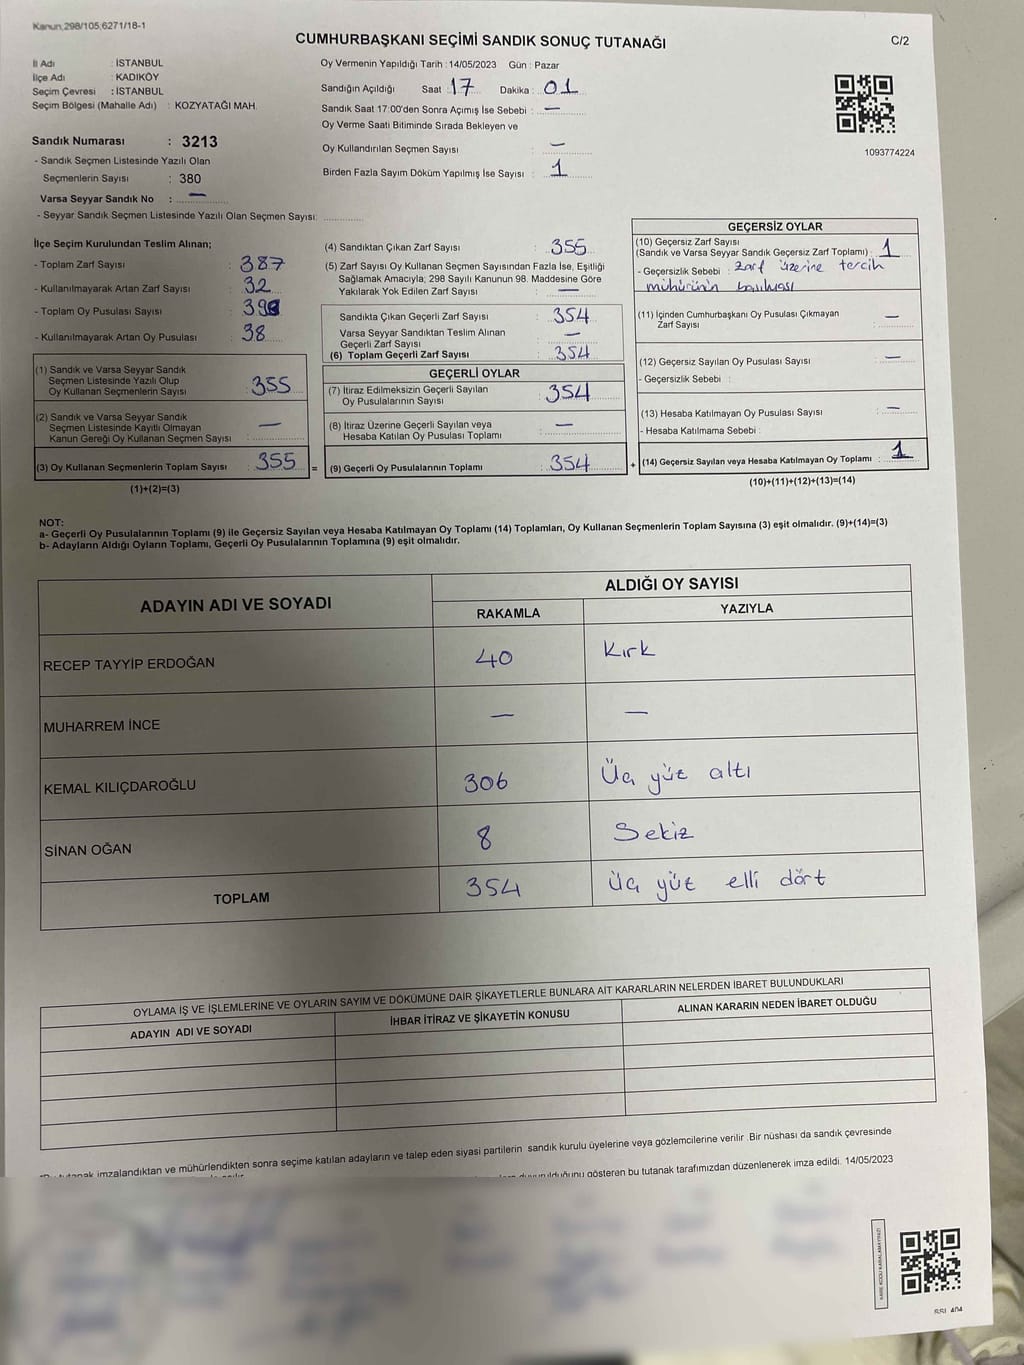 Kanun;298/105;6271/18-1
CUMHURBAŞKANI SEÇİMİ SANDIK SONUÇ TUTANAĞI
C/2
İl Adı : İSTANBUL
İlçe Adı : KADIKÖY
Seçim Çevresi : İSTANBUL
Seçim Bölgesi (Mahalle Adı) : KOZYATAĞI MAH.
Sandık Numarası : 3213
- Sandık Seçmen Listesinde Yazılı Olan
Seçmenlerin Sayısı : 380
Varsa Seyyar Sandık No : —
- Seyyar Sandık Seçmen Listesinde Yazılı Olan Seçmen Sayısı:
Oy Vermenin Yapıldığı Tarih : 14/05/2023 Gün : Pazar
Sandığın Açıldığı Saat : 17 Dakika : 01
Sandık Saat 17:00'den Sonra Açımış İse Sebebi : —
Oy Verme Saati Bitiminde Sırada Bekleyen ve
Oy Kullandırılan Seçmen Sayısı : —
Birden Fazla Sayım Döküm Yapılmış İse Sayısı : 1
1093774224
İlçe Seçim Kurulundan Teslim Alınan;
- Toplam Zarf Sayısı : 387
- Kullanılmayarak Artan Zarf Sayısı : 32
- Toplam Oy Pusulası Sayısı :
- Kullanılmayarak Artan Oy Pusulası : 38
(1) Sandık ve Varsa Seyyar Sandık
Seçmen Listesinde Yazılı Olup
Oy Kullanan Seçmenlerin Sayısı : 355
(2) Sandık ve Varsa Seyyar Sandık
Seçmen Listesinde Kayıtlı Olmayan
Kanun Gereği Oy Kullanan Seçmen Sayısı : —
(3) Oy Kullanan Seçmenlerin Toplam Sayısı : 355
(1)+(2)=(3)
(4) Sandıktan Çıkan Zarf Sayısı : 355
(5) Zarf Sayısı Oy Kullanan Seçmen Sayısından Fazla İse, Eşitliği
Sağlamak Amacıyla; 298 Sayılı Kanunun 98. Maddesine Göre
Yakılarak Yok Edilen Zarf Sayısı : —
Sandıkta Çıkan Geçerli Zarf Sayısı : 354
Varsa Seyyar Sandıktan Teslim Alınan
Geçerli Zarf Sayısı : —
(6) Toplam Geçerli Zarf Sayısı : 354
GEÇERLİ OYLAR
(7) İtiraz Edilmeksizin Geçerli Sayılan
Oy Pusulalarının Sayısı : 354
(8) İtiraz Üzerine Geçerli Sayılan veya
Hesaba Katılan Oy Pusulası Toplamı : —
= (9) Geçerli Oy Pusulalarının Toplamı : 354
GEÇERSİZ OYLAR
(10) Geçersiz Zarf Sayısı
(Sandık ve Varsa Seyyar Sandık Geçersiz Zarf Toplamı) : 1
- Geçersizlik Sebebi : Zarf üzerine tercih
mühürünün basılması
(11) İçinden Cumhurbaşkanı Oy Pusulası Çıkmayan
Zarf Sayısı : —
(12) Geçersiz Sayılan Oy Pusulası Sayısı : —
- Geçersizlik Sebebi :
(13) Hesaba Katılmayan Oy Pusulası Sayısı : —
- Hesaba Katılmama Sebebi :
+ (14) Geçersiz Sayılan veya Hesaba Katılmayan Oy Toplamı : 1
(10)+(11)+(12)+(13)=(14)
NOT:
a- Geçerli Oy Pusulalarının Toplamı (9) ile Geçersiz Sayılan veya Hesaba Katılmayan Oy Toplamı (14) Toplamları, Oy Kullanan Seçmenlerin Toplam Sayısına (3) eşit olmalıdır. (9)+(14)=(3)
b- Adayların Aldığı Oyların Toplamı, Geçerli Oy Pusulalarının Toplamına (9) eşit olmalıdır.
ADAYIN ADI VE SOYADI
ALDIĞI OY SAYISI
RAKAMLA YAZIYLA
RECEP TAYYİP ERDOĞAN 40 Kırk
MUHARREM İNCE — —
KEMAL KILIÇDAROĞLU 306 Üç yüz altı
SİNAN OĞAN 8 Sekiz
TOPLAM 354 Üç yüz elli dört
OYLAMA İŞ VE İŞLEMLERİNE VE OYLARIN SAYIM VE DÖKÜMÜNE DAİR ŞİKAYETLERLE BUNLARA AİT KARARLARIN NELERDEN İBARET BULUNDUKLARI
ADAYIN ADI VE SOYADI İHBAR İTİRAZ VE ŞİKAYETİN KONUSU ALINAN KARARIN NEDEN İBARET OLDUĞU
tutanak imzalandıktan ve mühürlendikten sonra seçime katılan adayların ve talep eden siyasi partilerin sandık kurulu üyelerine veya gözlemcilerine verilir .Bir nüshası da sandık çevresinde
duyurulduğunu gösteren bu tutanak tarafımızdan düzenlenerek imza edildi. 14/05/2023